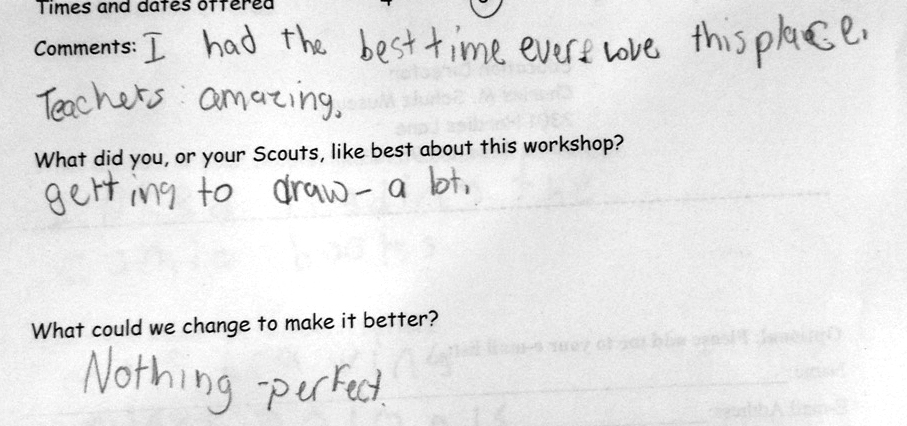 Times and dates offered
Comments: I had the best time ever I love this place.
Teachers: amazing.
What did you, or your Scouts, like best about this workshop?
getting to draw - a lot.
What could we change to make it better?
Nothing - perfect.